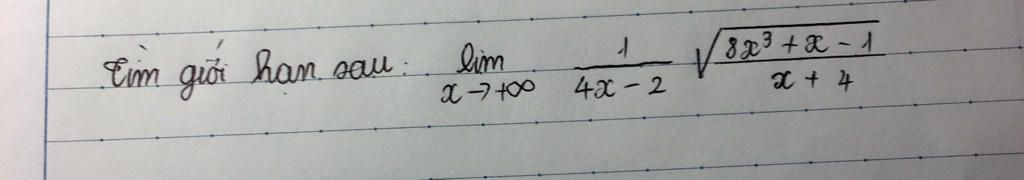 Tìm giới hạn sau: lim x→+∞ 1/(4x − 2) √((8x³ + x − 1)/(x + 4))